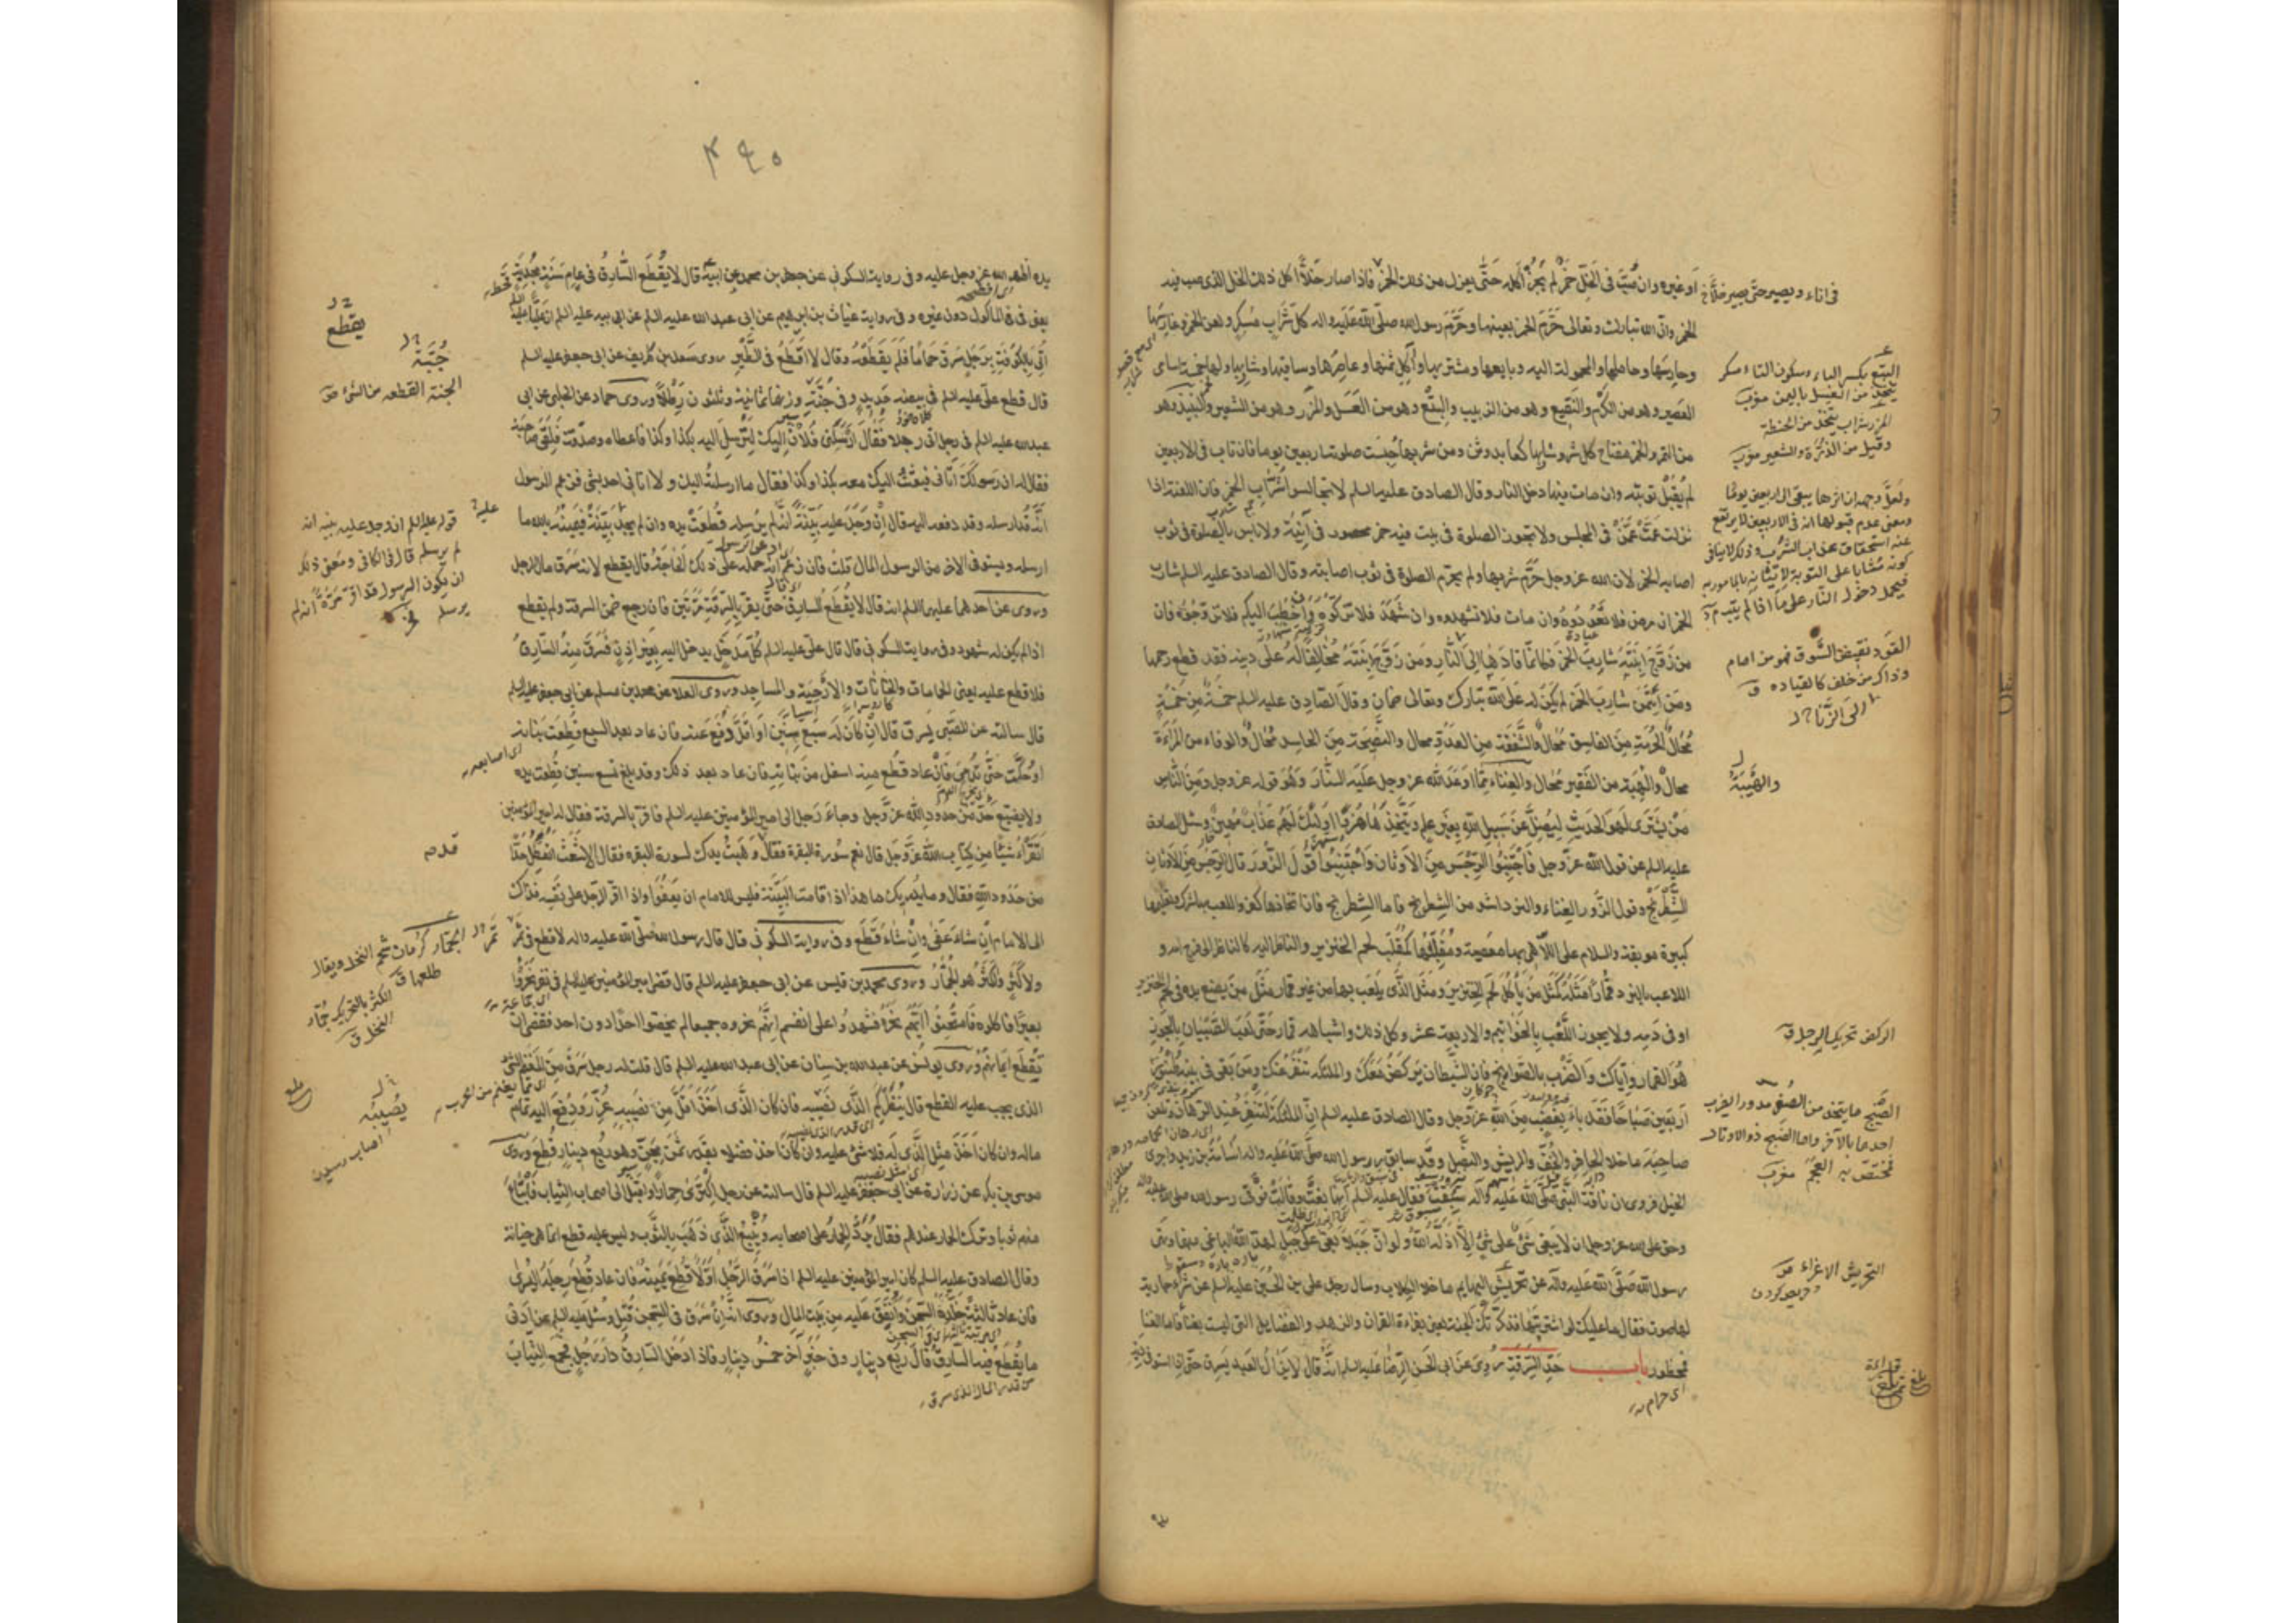 او غيره وان صُبَّ فى الخَلّ خمرٌ لم يَجُزْ أكله حَتّى يعزل من ذلك الخمر فاذا صار خَلّاً اكل ذلك الخل الذى صب فيه
الخمر وانّ الله تبارك وتعالى حَرَّمَ الخمر بعينها وحَرَّمَ رسول الله صلى الله عليه واله كلّ شراب مُسكِر ولعن الخمر وغارسها
وحارسها وحاملها والمحمولة اليه وبايعها ومشتريها وآكِل ثمنها وعاصرها وساقيها وشاربها ولها خمسة اسامى
العصير وهو من الكَرْم والنقيع وهو من الزبيب والبِتْع وهو من العَسَل والمِزْر وهو من الشعير والنبيذ وهو
من التمر والخمر مفتاح كل شر وشاربها كعابد وثن ومن شربها حُبِسَت صلوته اربعين يوما فان تاب فى الاربعين
لم يُقبَل توبته وان مات فيها دخل النار وقال الصادق عليه السلم لا تجالسوا شُرّاب الخمر فان اللعنة اذا
نزلت عَمَّت مَن فى المجلس ولا تجوز الصلوة فى بيت فيه خمر محصور فى آنية ولا باس بالصلوة فى ثوب
اصابه الخمر لان الله عز وجل حَرَّم شربها ولم يحرّم الصلوة فى ثوب اصابته وقال الصادق عليه السلم شارب
الخمر ان مرض فلا تَعُودُوهُ وان مات فلا تشهدوه وان شَهِدَ فلا تزكّوه وان خطب اليكم فلا تزوجوه فان
من زَوَّجَ ابنته شاربَ الخمر فكانّما قادها الى النار ومن زوّج ابنته مخالفا له على دينه فقد قطع رحمها
ومن ائتمن شارب الخمر لم يكن له على الله تبارك وتعالى ضمان وقال الصادق عليه السلم خمسة من خمسةٍ
مُحالٌ الحُرمَةِ مِنَ الفاسق مُحالٌ والشفقة من العدوّ محال والنصيحة من الحاسد مُحالٌ والوفاء من المرأة
محالٌ والهيبة من الفقير مُحال والغناء ممّا اوعد الله عز وجل عليه النار وهو قوله عز وجل ومِنَ الناس
مَن يشترى لهو الحديث ليُضِلَّ عن سبيل الله بغير علم ويتّخذها هزوا اولئك لهم عذاب مهين وسئل الصادق
عليه السلم عن قول الله عز وجل فاجتنبوا الرجس من الاوثان واجتنبوا قول الزور قال الرجس من الاوثان
الشطرنج وقول الزور الغناء والنرد اشد من الشطرنج فاما الشطرنج فان اتخاذها كفر واللعب بها شرك وتعليمها
كبيرة موبقة والسلام على اللاهى بها معصية ومقلّبها كمقلّب لحم الخنزير والناظر اليه كالناظر الى فرج امه و
اللاعب بالنرد قمارا مَثَلُه كمَثَل من يأكل لحم الخنزير ومثل الذى يلعب بها من غير قمار مثل من يضع يده فى لحم الخنزير
او فى دمه ولا يجوز اللعب بالخواتيم والاربعة عشر وكل ذلك واشباهه قمار حَتّى لعب الصبيان بالجوز
هو القمار واياك والضرب بالصوانيج فان الشيطان يركض معك والملئكة تنفر عنك ومن بقى فى بيته طنبور
اربعين صباحا فقد باء بغضب من الله عز وجل وقال الصادق عليه السلم انّ الملئكة لتنفر عند الرهان وتلعن
صاحبه ما خلا الحافر والخُفّ والريش والنصل وقد سابق رسول الله صلى الله عليه واله اسامة بن زيد واجرى
الخيل فروى ان ناقة النبى صلى الله عليه وآله سبقت فقال عليه السلم انها بغت وقالت فوقى رسول الله صلى الله عليه واله
وحق على الله عز وجل ان لا يبغى شئ على شئ الّا اذلّه الله ولو انّ جبلا بغى على جبل لهدّ الله الباغى منهما ونهى
رسول الله صلى الله عليه وآله عن تحريش البهايم ما خلا الكلاب وسال رجل على بن الحسين عليه السلم عن شراء جارية
لها صوت فقال ما عليك لو اشتريتها فذكّرتك الجنة يعنى بقراءة القران والزهد والفضايل التى ليست بغناء فاما الغناء
فمحظور باب حَدّ السرقة رُوِىَ عن ابى الحسن الرضا عليه السلم انّه قال لا يزال العبد يسرق حتّى اذا استوفى ثمن
اى حرام
فى اناء ويصير حتى يصير خلّا
البِتْع بكسر الباء وسكون التاء مسكر
يتخذ من العسل باليمن مغرب
المزر شراب يتخذ من الحنطة
وقيل من الذرة والشعير مغرب
القود نقيض السوق فهو من امام
وذاك من خلف كالقياده ق
الى الزنا
والهيبة
الركض تحريك الرجل ق
الصنج ما يتخذ من الصفر مدورا يضرب
احدهما بالآخر واما الصنج ذو الاوتار
فمختص به العجم مغرب
التحريش الاغراء
٤٩٥
يده اظهره الله عز وجل عليه وفى رواية السكونى عن جعفر بن محمد عن ابيه قال لا يُقطَع السّارقُ فى عام سنة مجدبة
يعنى فى المأكول دون غيره وفى رواية غياث بن ابرهيم عن ابى عبد الله عليه السلم عن ابيه عليه السلم ان عليا عليه السلم
اُتِىَ بالكوفة برجل سرق حماما فلم يقطعه وقال لا اقطع فى الطير روى سعد بن طريف عن ابى جعفر عليه السلم
قال قطع علىّ عليه السلم فى بيضة حديد وفى جُنّةٍ وزنها ثمانية وثلثون رطلا وروى حماد عن الحلبى عن ابى
عبد الله عليه السلم فى رجل اتى رجلا فقال ارسلنى فلان اليك لترسل اليه بكذا وكذا فاعطاه وصدّقه فلقى صاحبه
فقال له ان رسولك اتانى فبعثت اليك معه بكذا وكذا فقال ما ارسلته اليك ولا اتانى احد بشئ فزعم الرسول
انّه قد ارسله وقد دفعه اليه قال ان وجد عليه بيّنة انّه لم يرسله قُطِعَت يده وان لم يجد بينة فيمينه بالله ما
ارسله ويستوفى الاخر من الرسول المال قلت فان زعم انه حمله على ذلك الحاجة قال يقطع لانه سرق مال الرجل
وروى عن احدهما عليهما السلم انه قال لا يقطع السارق حتّى يقرّ بالسرقة مرتين فان رجع ضمن السرقة ولم يقطع
اذا لم يكن له شهود وفى رواية السكونى قال قال علىّ عليه السلم كلّ مدخل يدخل اليه بغير اذن فسرق منه السارق
فلا قطع عليه يعنى الحمامات والخانات والارحية والمساجد وروى العلا عن محمد بن مسلم عن ابى جعفر عليه السلم
قال سالته عن الصبى يسرق قال ان كان له سبع سنين او اقل رُفع عنه فان عاد بعد السبع قُطِعت بنانه
او حُكّت حتّى تدمى فان عاد قطع منه اسفل من بنانه فان عاد بعد ذلك وقد بلغ تسع سنين قُطِعت يده
ولا يضيع حدّ من حدود الله عز وجل وجاء رجل الى امير المؤمنين عليه السلم فاقر بالسرقة فقال له امير المؤمنين
اتقرأ شيئا من كتاب الله عز وجل قال نعم سورة البقرة فقال وهبت يدك لسورة البقره فقال الاشعث اتعطل حدّا
من حدود الله فقال وما يدريك ما هذا اذا قامت البيّنة فليس للامام ان يعفو واذا اقر الرجل على نفسه فذاك
الى الامام ان شاء عفى وان شاء قطع وفى رواية السكونى قال قال رسول الله صلى الله عليه واله لا قطع فى ثمر
ولا كَثَر والكَثَر هو الجُمّار وروى محمد بن قيس عن ابى جعفر عليه السلم قال قضى امير المؤمنين عليه السلم فى نفر نحروا
بعيرا فاكلوه فامتحنوا ايّهم نحره فشهدوا على انفسهم انّهم نحروه جميعا لم يخصّوا احدا دون احد فقضى ان
تقطع ايمانهم وروى يونس عن عبد الله بن سنان عن ابى عبد الله عليه السلم قال قلت له رجل سرق من المغنم الشئ
الذى يجب عليه القطع قال ينظر كم الذى نصيبه فان كان الذى اخذ اقلّ من نصيبه عُزّر ودُفع اليه تمام
ماله وان كان اخذ مثل الذى له فلا شئ عليه وان كان اخذ فضلا بقدر ثمن مجنّ وهو ربع دينار قُطِع وروى
موسى بن بكر عن زرارة عن ابى جعفر عليه السلم قال سالته عن رجل اكترى حمارا واقبل الى اصحاب الثياب فابتاع
منهم ثوبا وترك الحمار عندهم فقال يُرَدُّ الحمار على اصحابه ويُتبع الذى ذهب بالثوب وليس عليه قطع انما هى خيانة
وقال الصادق عليه السلم كان امير المؤمنين عليه السلم اذا سرق الرجل اوّلا قطع يمينه فان عاد قطع رجله اليسرى
فان عاد ثالثة خلّده السجن وانفق عليه من بيت المال وروى انّه ان سرق فى السجن قُتِل وسئل عليه السلم عن ادنى
ما يقطع فيه السارق قال ربع دينار وفى خبر آخر خمسُ دينار فاذا دخل السارق دار رجل فجمع الثياب
من قدر المال الذى سرق
يقطع
جُبّة
الجنة القطعه من الشئ
قوله عليه السلم ان وجد عليه بينه انه
لم يرسله قال فى الكافى ومعنى ذلك
ان يكون الرسول قد اقر مرّة انه لم
يرسله
الجمّار كرمان شحم النخل ويقال
طلعها ق
الكثر بالتحريك جمار
النخل ق
يُصيبه